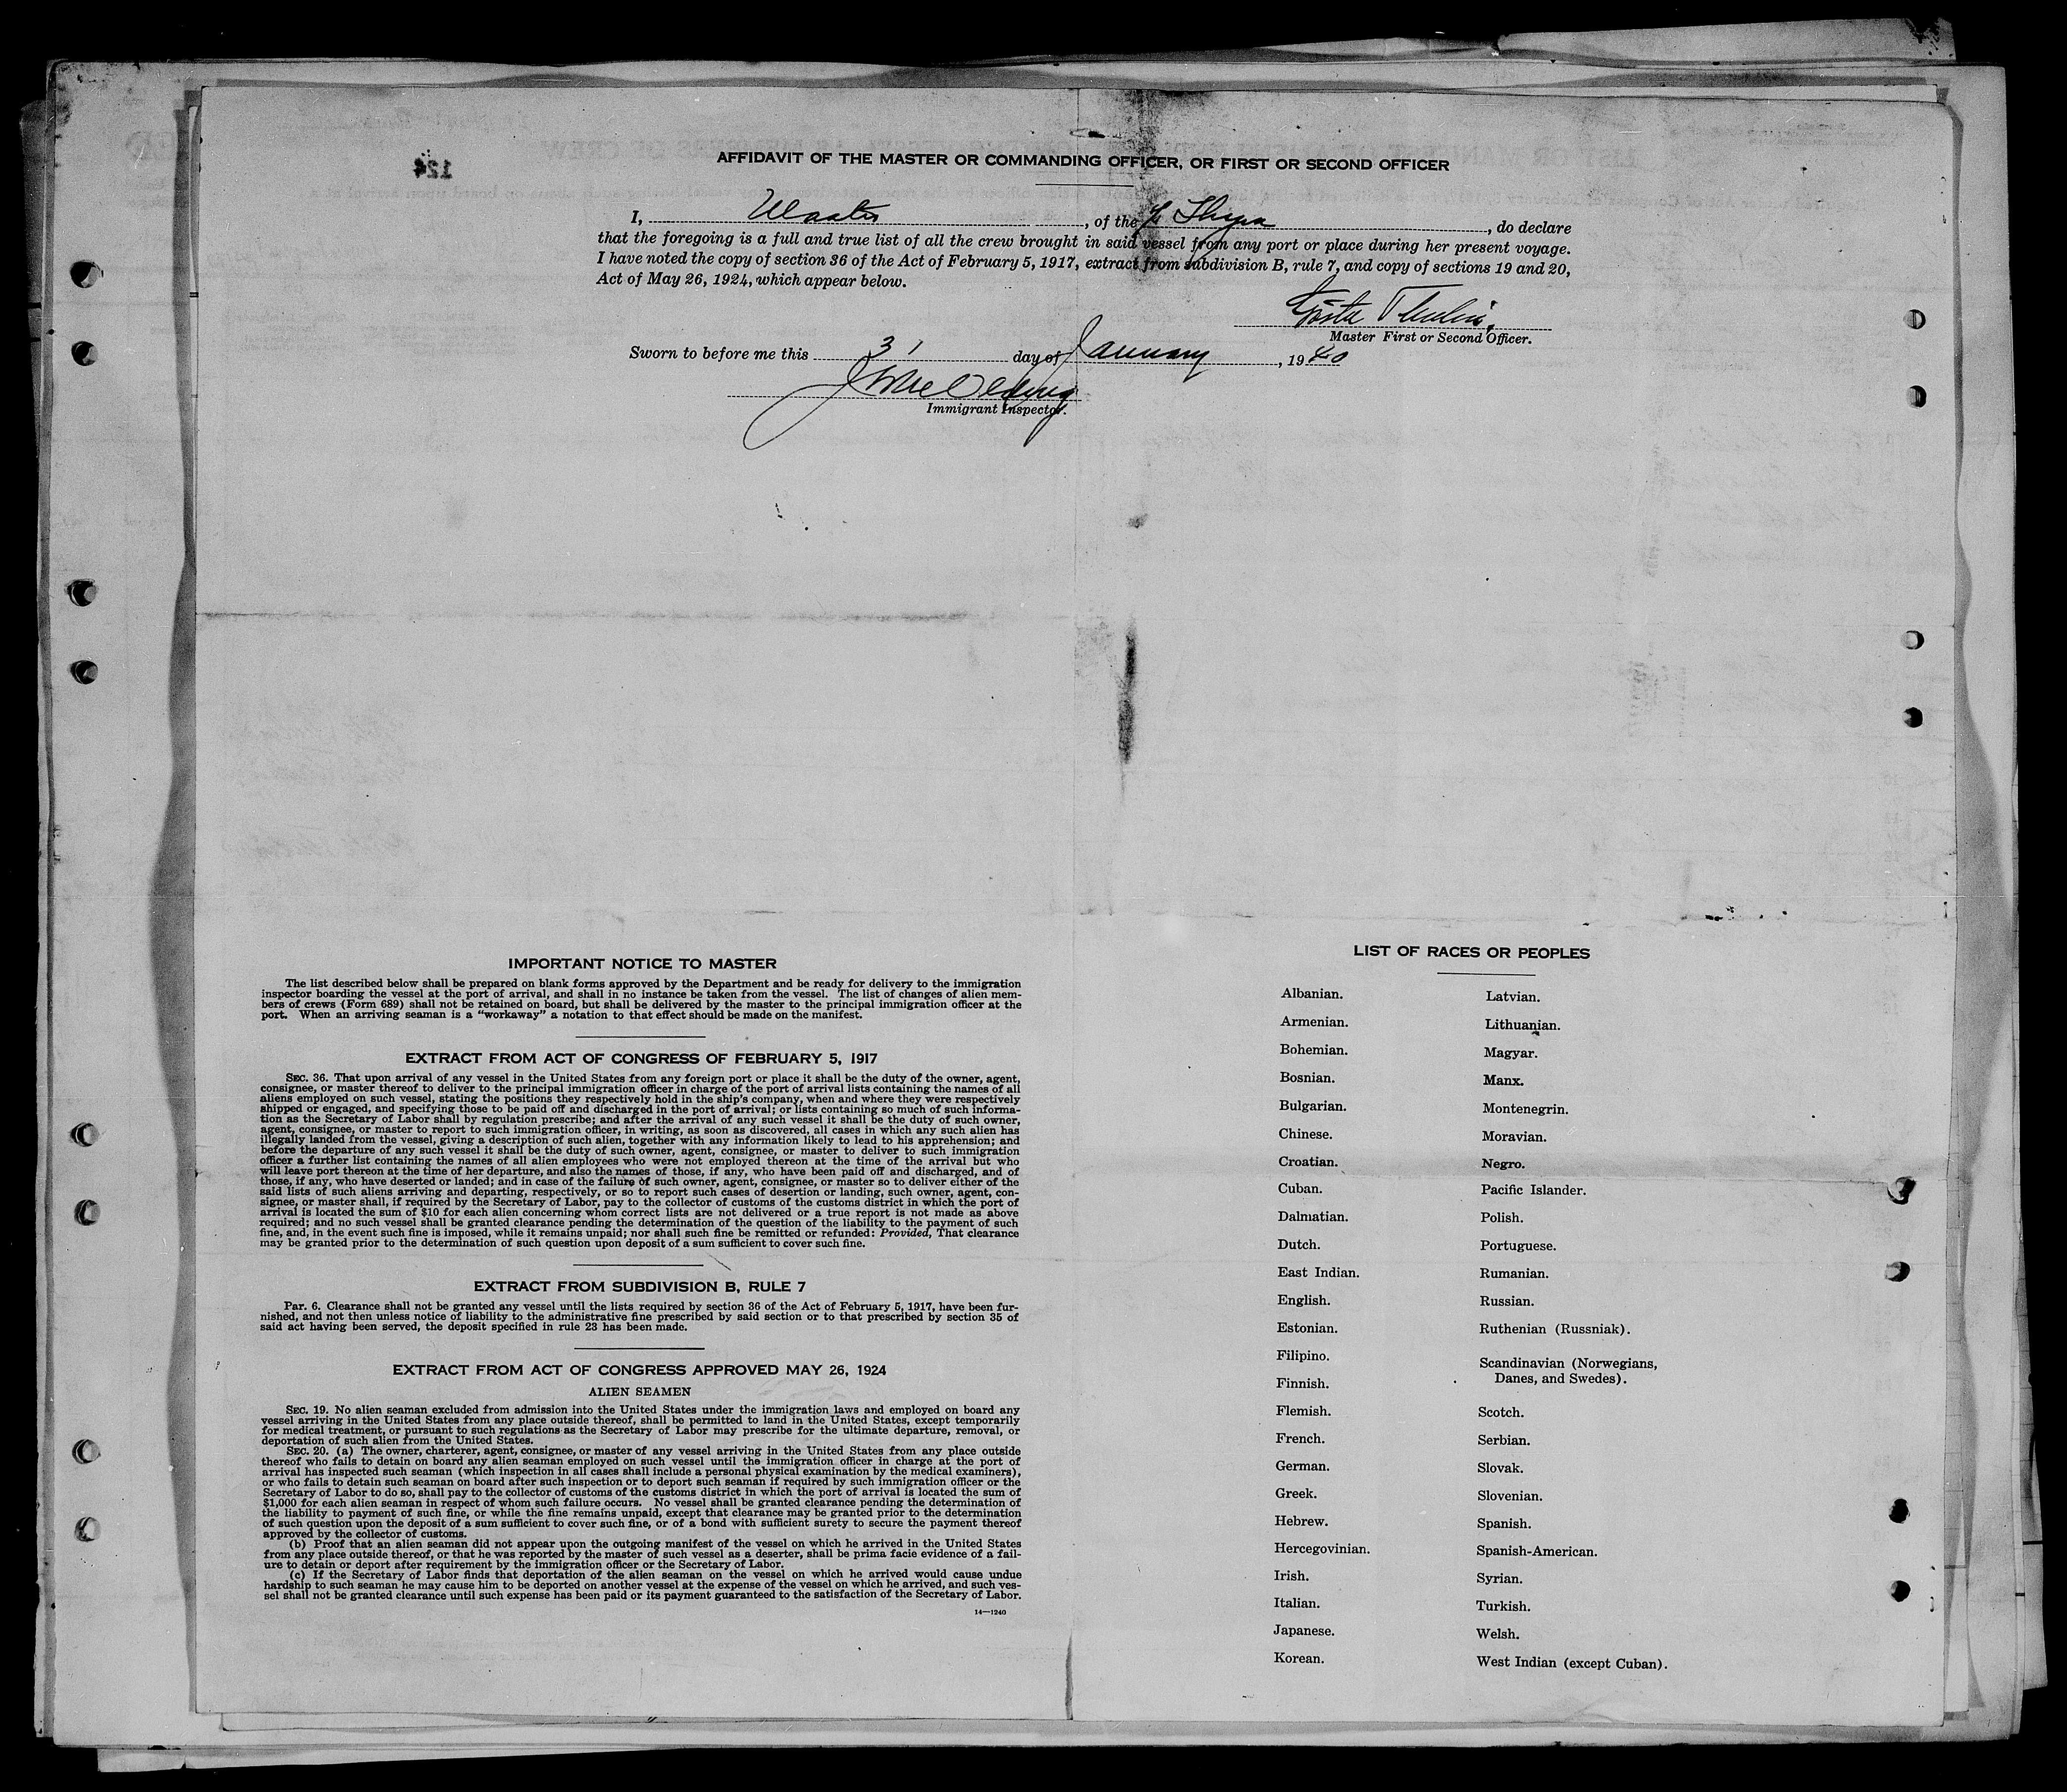 AFFIDAVIT OF THE MASTER OR COMMANDING OFFICER, OR FIRST OR SECOND OFFICER
I, Master, of the, do declare
that the foregoing is a full and true list of all the crew brought in said vessel from any port or place during her present voyage.
I have noted the copy of section 36 of the Act of February 5, 1917, extract from subdivision B, rule 7, and copy of sections 19 and 20,
Act of May 26, 1924, which appear below.
Gösta Thulin.
Master First or Second Officer.
Sworn to before me this 31 day of January, 1940
Immigrant Inspector.
IMPORTANT NOTICE TO MASTER
The list described below shall be prepared on blank forms approved by the Department and be ready for delivery to the immigration
inspector boarding the vessel at the port of arrival, and shall in no instance be taken from the vessel. The list of changes of alien mem-
bers of crews (Form 689) shall not be retained on board, but shall be delivered by the master to the principal immigration officer at the
port. When an arriving seaman is a "workaway" a notation to that effect should be made on the manifest.
EXTRACT FROM ACT OF CONGRESS OF FEBRUARY 5, 1917
SEC. 36. That upon arrival of any vessel in the United States from any foreign port or place it shall be the duty of the owner, agent,
consignee, or master thereof to deliver to the principal immigration officer in charge of the port of arrival lists containing the names of all
aliens employed on such vessel, stating the positions they respectively hold in the ship's company, when and where they were respectively
shipped or engaged, and specifying those to be paid off and discharged in the port of arrival; or lists containing so much of such informa-
tion as the Secretary of Labor shall by regulation prescribe; and after the arrival of any such vessel it shall be the duty of such owner,
agent, consignee, or master to report to such immigration officer, in writing, as soon as discovered, all cases in which any such alien has
illegally landed from the vessel, giving a description of such alien, together with any information likely to lead to his apprehension; and
before the departure of any such vessel it shall be the duty of such owner, agent, consignee, or master to deliver to such immigration
officer a further list containing the names of all alien employees who were not employed thereon at the time of the arrival but who
will leave port thereon at the time of her departure, and also the names of those, if any, who have been paid off and discharged, and of
those, if any, who have deserted or landed; and in case of the failure of such owner, agent, consignee, or master so to deliver either of the
said lists of such aliens arriving and departing, respectively, or so to report such cases of desertion or landing, such owner, agent, con-
signee, or master shall, if required by the Secretary of Labor, pay to the collector of customs of the customs district in which the port of
arrival is located the sum of $10 for each alien concerning whom correct lists are not delivered or a true report is not made as above
required; and no such vessel shall be granted clearance pending the determination of the question of the liability to the payment of such
fine, and, in the event such fine is imposed, while it remains unpaid; nor shall such fine be remitted or refunded: Provided, That clearance
may be granted prior to the determination of such question upon deposit of a sum sufficient to cover such fine.
EXTRACT FROM SUBDIVISION B, RULE 7
Par. 6. Clearance shall not be granted any vessel until the lists required by section 36 of the Act of February 5, 1917, have been fur-
nished, and not then unless notice of liability to the administrative fine prescribed by said section or to that prescribed by section 35 of
said act having been served, the deposit specified in rule 23 has been made.
EXTRACT FROM ACT OF CONGRESS APPROVED MAY 26, 1924
ALIEN SEAMEN
SEC. 19. No alien seaman excluded from admission into the United States under the immigration laws and employed on board any
vessel arriving in the United States from any place outside thereof, shall be permitted to land in the United States, except temporarily
for medical treatment, or pursuant to such regulations as the Secretary of Labor may prescribe for the ultimate departure, removal, or
deportation of such alien from the United States.
SEC. 20. (a) The owner, charterer, agent, consignee, or master of any vessel arriving in the United States from any place outside
thereof who fails to detain on board any alien seaman employed on such vessel until the immigration officer in charge at the port of
arrival has inspected such seaman (which inspection in all cases shall include a personal physical examination by the medical examiners),
or who fails to detain such seaman on board after such inspection or to deport such seaman if required by such immigration officer or the
Secretary of Labor to do so, shall pay to the collector of customs of the customs district in which the port of arrival is located the sum of
$1,000 for each alien seaman in respect of whom such failure occurs. No vessel shall be granted clearance pending the determination of
the liability to payment of such fine, or while the fine remains unpaid, except that clearance may be granted prior to the determination
of such question upon the deposit of a sum sufficient to cover such fine, or of a bond with sufficient surety to secure the payment thereof
approved by the collector of customs.
(b) Proof that an alien seaman did not appear upon the outgoing manifest of the vessel on which he arrived in the United States
from any place outside thereof, or that he was reported by the master of such vessel as a deserter, shall be prima facie evidence of a fail-
ure to detain or deport after requirement by the immigration officer or the Secretary of Labor.
(c) If the Secretary of Labor finds that deportation of the alien seaman on the vessel on which he arrived would cause undue
hardship to such seaman he may cause him to be deported on another vessel at the expense of the vessel on which he arrived, and such ves-
sel shall not be granted clearance until such expense has been paid or its payment guaranteed to the satisfaction of the Secretary of Labor.
14—1240
LIST OF RACES OR PEOPLES
Albanian.
Armenian.
Bohemian.
Bosnian.
Bulgarian.
Chinese.
Croatian.
Cuban.
Dalmatian.
Dutch.
East Indian.
English.
Estonian.
Filipino.
Finnish.
Flemish.
French.
German.
Greek.
Hebrew.
Hercegovinian.
Irish.
Italian.
Japanese.
Korean.
Latvian.
Lithuanian.
Magyar.
Manx.
Montenegrin.
Moravian.
Negro.
Pacific Islander.
Polish.
Portuguese.
Rumanian.
Russian.
Ruthenian (Russniak).
Scandinavian (Norwegians,
Danes, and Swedes).
Scotch.
Serbian.
Slovak.
Slovenian.
Spanish.
Spanish-American.
Syrian.
Turkish.
Welsh.
West Indian (except Cuban).